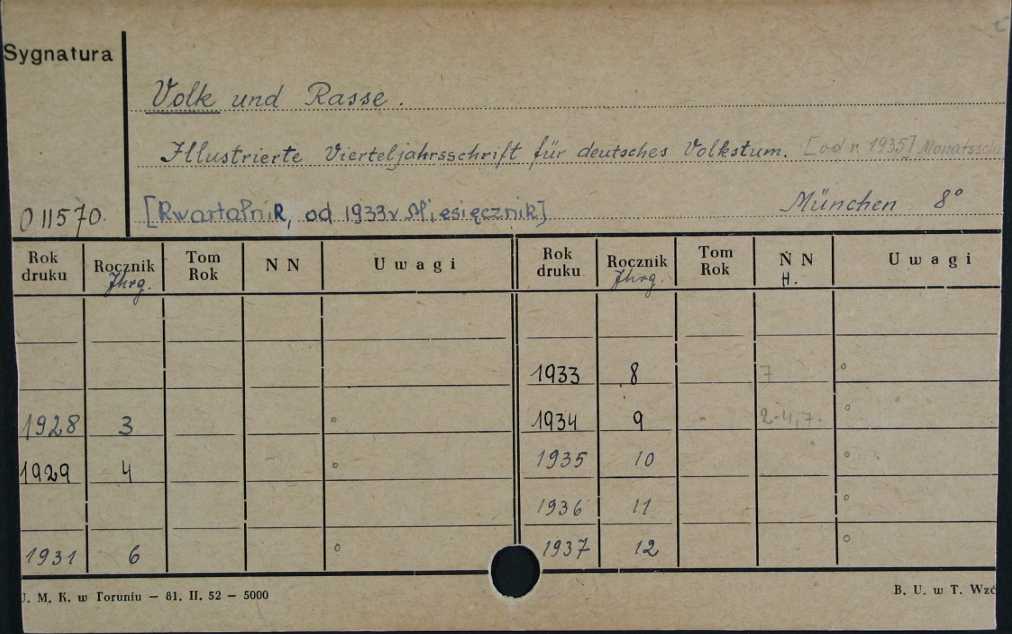 Sygnatura
Volk und Rasse.
Illustrierte Vierteljahrsschrift für deutsches Volkstum. [od r. 1935]
011570. [Kwartalnik, od 1933 r. Miesięcznik] München 8°
Rok druku Rocznik Jhrg. Tom Rok N N Uwagi Rok druku Rocznik Jhrg. Tom Rok N N H. Uwagi
1933 8 7 °
1928 3 ° 1934 9 2-4, 7. °
1929 4 ° 1935 10 °
1936 11 °
1931 6 ° 1937 12 °
U. M. K. w Toruniu — 81. II. 52 — 5000 B. U. w T.